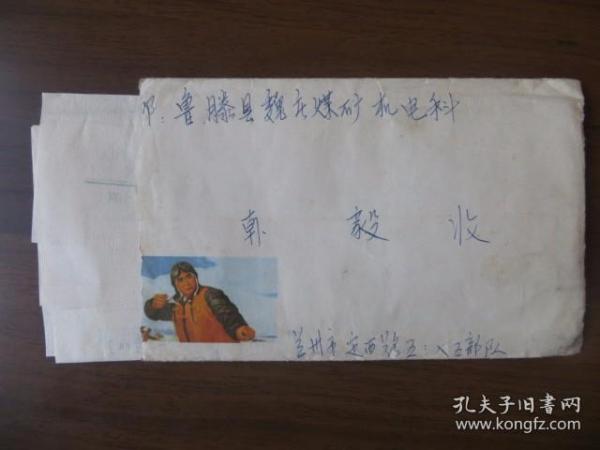 鲁滕县魏庄煤矿机电科
毅 收
兰州市定西路五:八五部队
孔夫子旧书网
www.kongfz.com